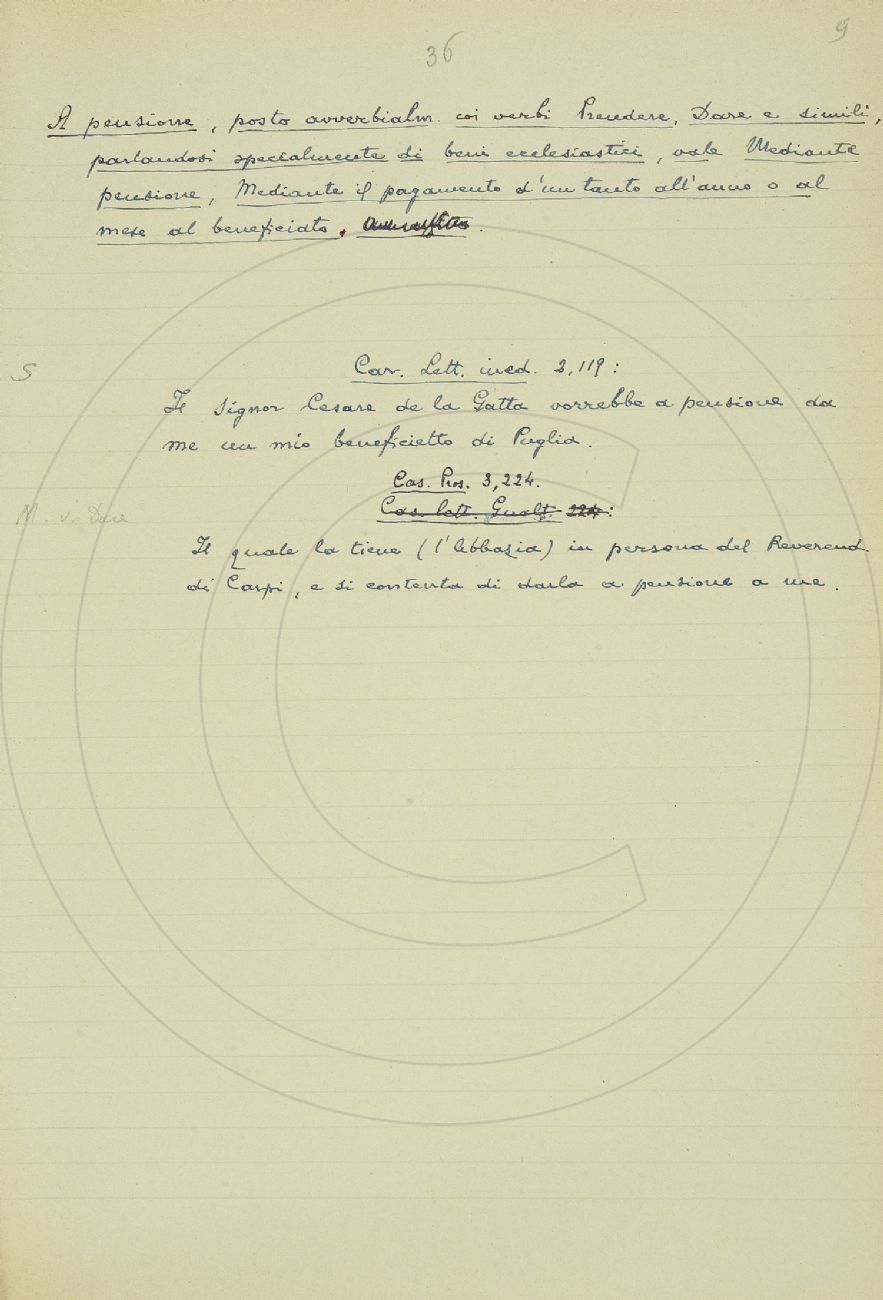 9
36
A pensione, posto avverbialm. coi verbi Prendere, Dare e simili,
parlandosi specialmente di beni ecclesiastici, vale Mediante
pensione, Mediante il pagamento d'un tanto all'anno o al
mese al beneficiato.
S
Car. Lett. ined. 2,119:
Il Signor Cesare de la Gatta vorrebbe a pensione da
me un mio beneficietto di Puglia.
Cas. Pros. 3,224.
Cas. lett. Gualt. 224:
M. v. Dare
Il quale la tiene (l'Abbazia) in persona del Reverend.
di Carpi, e si contenta di darla a pensione a me.